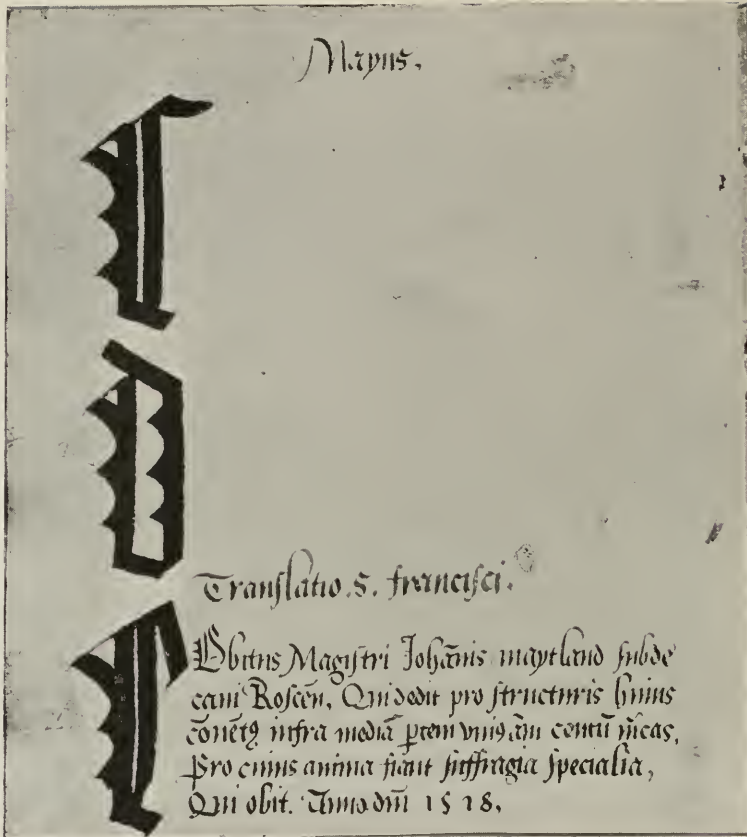 Mayus.
c
d
Translatio .S. francisci.
e
Obitus Magistri Johānis maytland subde
cani Roscēn, Qui dedit pro structuris huius
cōnētꝰ infra mediā ꝑtem vniꝰ āni centū m̄cas,
Pro cuius anima fiant suffragia specialia,
Qui obit. Anno dn̄i 1518,